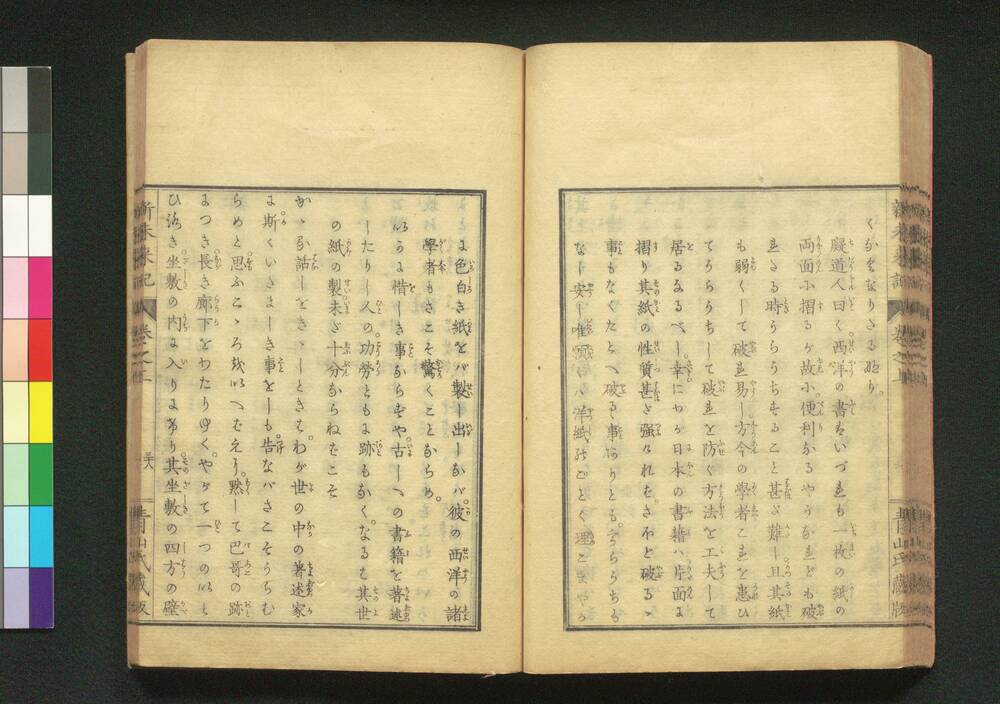 くなをなりさる也り。
凝道人曰く。西洋の書をいづれも一枚の紙の
両面に摺るが故に。便利なるやうなれども破
れさる時うらうちすること甚だ難し且其紙
も弱くして破れ易し方今の學者これを患ひ
てうらうちして破れを防ぐ方法を工夫して
居るなるべし。幸にわが日本の書籍ハ片面に
摺り其紙の性質甚だ強けれバ。さのミ破るゝ
事もなくたとへ破るゝ事ありとも。うらうちも
なし安し唯
洋紙のごとく
に色白き紙をバ製し出しなバ。彼の西洋の諸
學者もさこそ驚くことならめ。
いかに惜しき事ならずや古しへの書籍を著述
したりし人の功勞ともに跡もなくなるを其世
の紙の製未だ十分ならねをこそ
かゝる話しをきゝしときもわが世の中の著述家
に斯くいさましき事をしも告なバさこそうらむ
らめと思ふこゝろをいへむえり。黙して巴哥の跡
につき長き廊下をわたりゆく。やがて一つのいと
ひろき坐敷の内に入りにけり其坐敷の四方の壁
新未来記
巻之上
青山氏蔵版